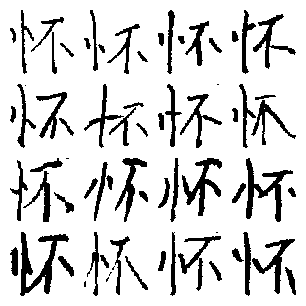 怀怀怀怀
怀怀怀怀
怀怀怀怀
怀怀怀怀